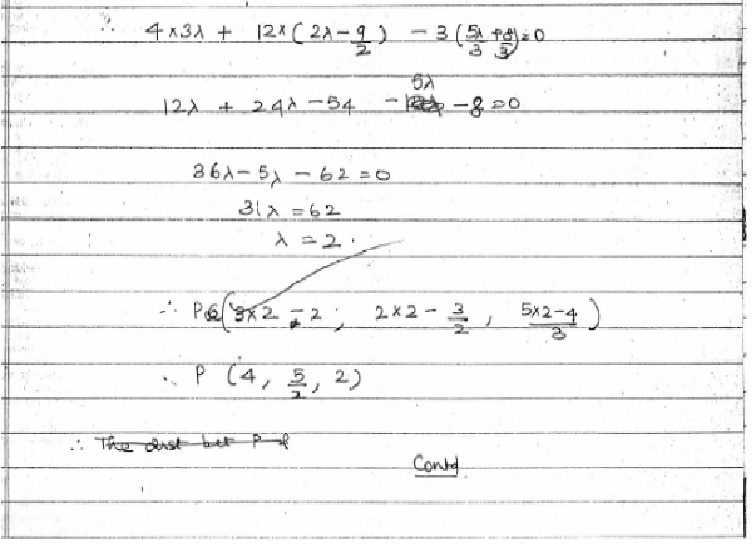 ∴ 4×3λ + 12×(2λ - 9/2) - 3(5λ/3 + 8/3) = 0
12λ + 24λ - 54 - 5λ - 8 = 0
36λ - 5λ - 62 = 0
31λ = 62
λ = 2.
∴ P (3×2 - 2; 2×2 - 3/2, 5×2-4/3)
∴ P (4, 5/2, 2)
∴ The dist bet P &
Contd